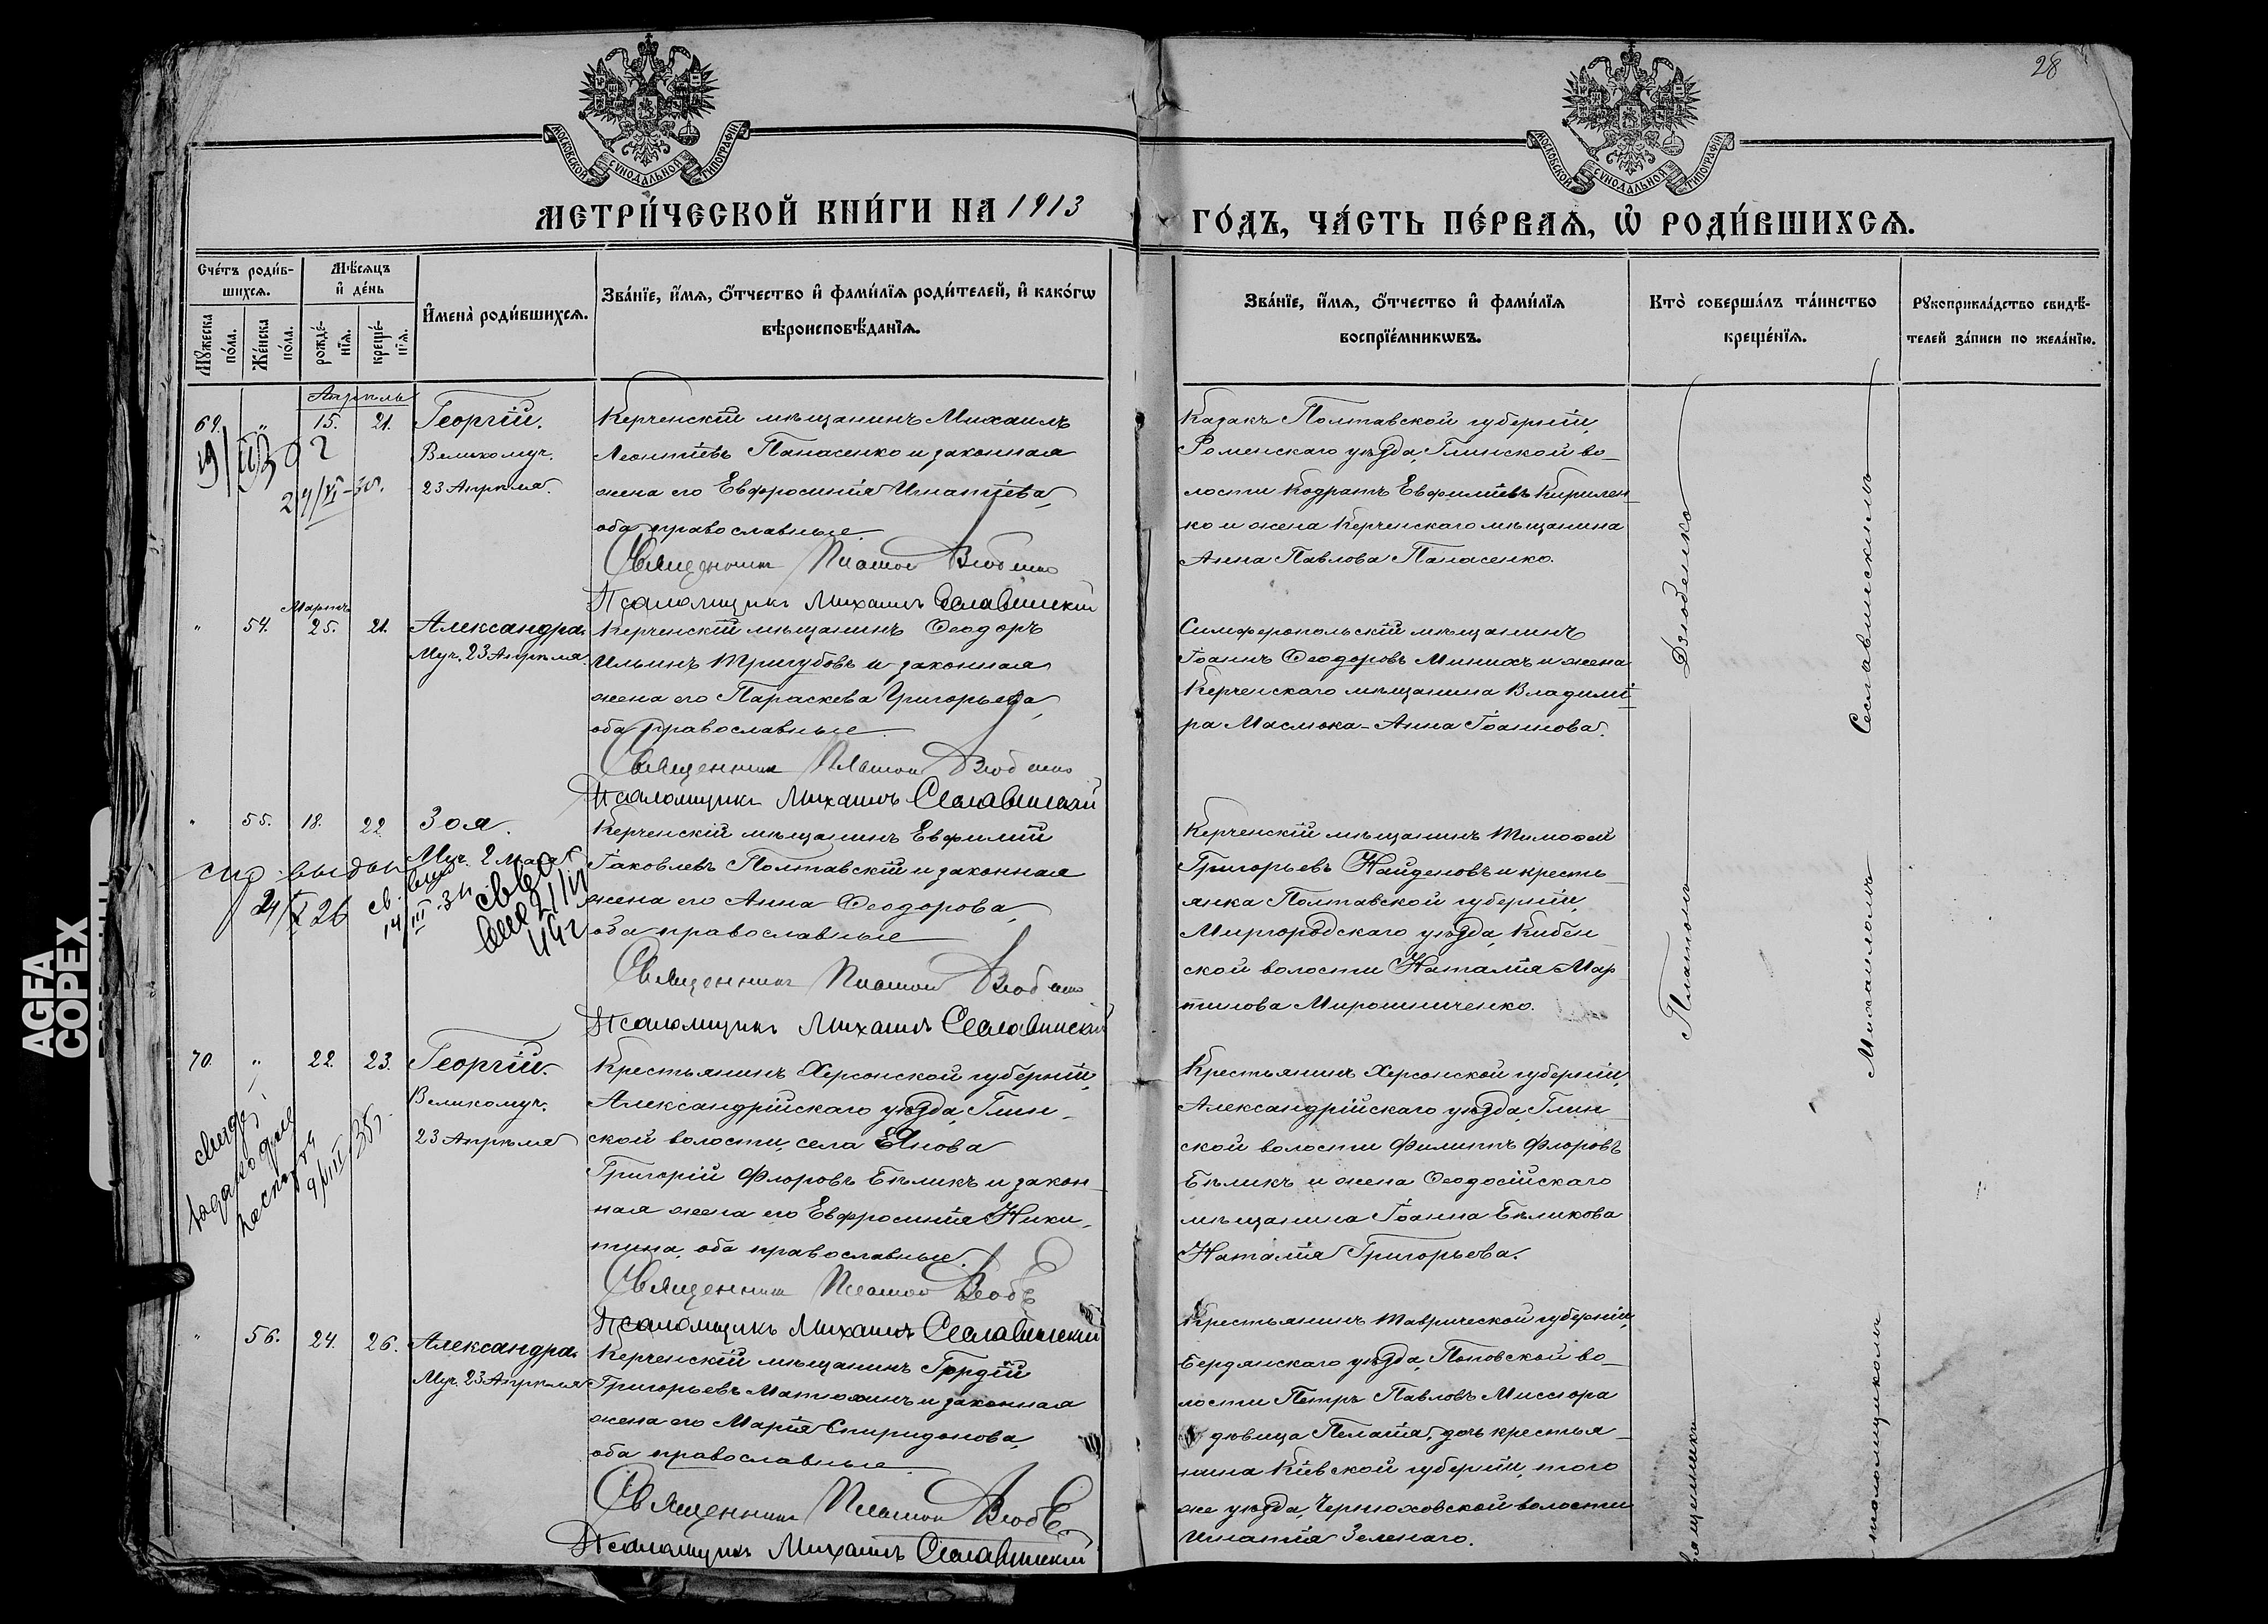 28
МОСКОВСКОЙ СУНОДАЛЬНОЙ ТИПОГРАФІИ
МОСКОВСКОЙ СУНОДАЛЬНОЙ ТИПОГРАФІИ
МЕТРИ́ЧЕСКОЙ КНИ́ГИ НА 1913
ГО́ДЪ, ЧА́СТЬ ПЕ́РВАѦ, Ѡ҆ РОДИ́ВШИХСѦ.
Сче́тъ роди́в-
шихсѧ.
Мꙋ́жеска по́ла.
Же́нска по́ла.
Мѣ́сѧцъ
и҆ де́нь
рожде́-
нїѧ.
креще́-
нїѧ.
И҆мена̀ роди́вшихсѧ.
Зва́нїе, и҆́мѧ, ѻ҆́тчество и҆ фами́лїѧ роди́телей, и҆ како́гѡ
вѣроисповѣ́данїѧ.
Зва́нїе, и҆́мѧ, ѻ҆́тчество и҆ фами́лїѧ
воспрїе́мникѡвъ.
Кто̀ соверша́лъ та́инство
креще́нїѧ.
Рꙋкоприкла́дство свидѣ́-
телей за́писи по жела́нїю.
Апрѣль
69. " 15. 21. Георгій.
Великомуч.
23 Апрѣля.
Керченскій мѣщанинъ Михаилъ
Леонтіевъ Панасенко и законная
жена его Евфросинія Игнатіева,
оба православные.
Священникъ Платон
Псаломщикъ Михаилъ Сеславинскій
Казакъ Полтавской губерніи,
Роменскаго уѣзда, Глинской во-
лости Кодратъ Евфиміевъ Кирилен-
ко и жена Керченскаго мѣщанина
Анна Павлова Панасенко.
Мартъ
" 54. 25. 21. Александра.
Муч. 23 Апрѣля.
Керченскій мѣщанинъ Ѳеодоръ
Ильинъ Тригубовъ и законная
жена его Параскева Григорьева,
оба православные.
Священникъ Платон
Псаломщикъ Михаилъ Сеславинскій
Симферопольскій мѣщанинъ
Іоаннъ Ѳеодоровъ Минихъ и жена
Керченскаго мѣщанина Владими-
ра Маслюка - Анна Іоаннова.
" 55. 18. 22 Зоя.
Муч. 2 Мая
Керченскій мѣщанинъ Евфимій
Іаковлевъ Полтавскій и законная
жена его Анна Ѳеодорова,
оба православные
Священникъ Платон
Псаломщикъ Михаилъ Сеславинскій
Керченскій мѣщанинъ Тимоѳей
Григорьевъ Найденовъ и кресть-
янка Полтавской губерніи,
Миргородскаго уѣзда, Кибен-
ской волости Наталія Мар
тинова Мирошниченко.
70. " 22. 23. Георгій.
Великомуч.
23 Апрѣля
Крестьянинъ Херсонской губерніи,
Александрійскаго уѣзда, Глин-
ской волости, села
Григорій Флоровъ Бѣликъ и закон-
ная жена его Евфросинія Ники-
тина, оба православные.
Священникъ Платон
Псаломщикъ Михаилъ Сеславинскій
Крестьянинъ Херсонской губерніи,
Александрійскаго уѣзда, Глин-
ской волости Филиппъ Флоровъ
Бѣликъ и жена Ѳеодосійскаго
мѣщанина Іоанна Бѣликова
Наталія Григорьева.
" 56. 24. 26. Александра.
Муч. 23 Апрѣля
Керченскій мѣщанинъ Гордій
Григорьевъ Матюхинъ и законная
жена его Марія Спиридонова,
оба православные.
Священникъ Платон
Псаломщикъ Михаилъ Сеславинскій
Крестьянинъ Таврической губерніи,
Бердянскаго уѣзда, Поповской во-
лости Петръ Павловъ Миссюра
дѣвица Пелагія, дочь крестья-
нина Кіевской губерніи, того
же уѣзда, Черняховской волости
Игнатія Зеленаго.
Платономъ Дзюбенко
Михаиломъ Сеславинскимъ
AGFA
COPEX